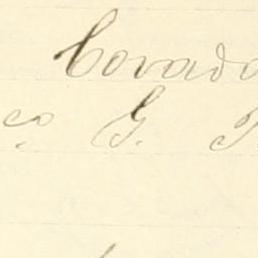 Covado
co G.